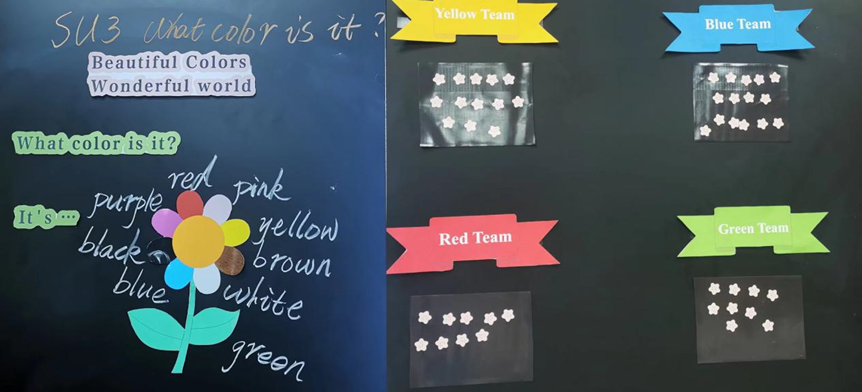 SU3 What color is it?
Beautiful Colors
Wonderful world
What color is it?
It's ...
red
purple
pink
yellow
black
brown
blue
white
green
Yellow Team
Blue Team
Red Team
Green Team